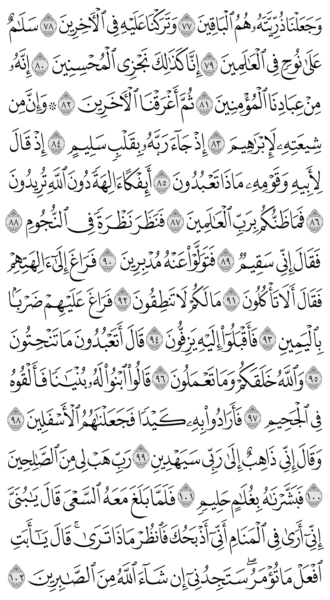 وَجَعَلْنَا ذُرِّيَّتَهُۥ هُمُ ٱلْبَاقِينَ ٧٧ وَتَرَكْنَا عَلَيْهِ فِى ٱلْءَاخِرِينَ ٧٨ سَلَٰمٌ
عَلَىٰ نُوحٍ فِى ٱلْعَٰلَمِينَ ٧٩ إِنَّا كَذَٰلِكَ نَجْزِى ٱلْمُحْسِنِينَ ٨٠ إِنَّهُۥ
مِنْ عِبَادِنَا ٱلْمُؤْمِنِينَ ٨١ ثُمَّ أَغْرَقْنَا ٱلْءَاخَرِينَ ٨٢ ۞ وَإِنَّ مِن
شِيعَتِهِۦ لَإِبْرَٰهِيمَ ٨٣ إِذْ جَآءَ رَبَّهُۥ بِقَلْبٍ سَلِيمٍ ٨٤ إِذْ قَالَ
لِأَبِيهِ وَقَوْمِهِۦ مَاذَا تَعْبُدُونَ ٨٥ أَئِفْكًا ءَالِهَةً دُونَ ٱللَّهِ تُرِيدُونَ
٨٦ فَمَا ظَنُّكُم بِرَبِّ ٱلْعَٰلَمِينَ ٨٧ فَنَظَرَ نَظْرَةً فِى ٱلنُّجُومِ ٨٨
فَقَالَ إِنِّى سَقِيمٌ ٨٩ فَتَوَلَّوْا۟ عَنْهُ مُدْبِرِينَ ٩٠ فَرَاغَ إِلَىٰٓ ءَالِهَتِهِمْ
فَقَالَ أَلَا تَأْكُلُونَ ٩١ مَا لَكُمْ لَا تَنطِقُونَ ٩٢ فَرَاغَ عَلَيْهِمْ ضَرْبًۢا
بِٱلْيَمِينِ ٩٣ فَأَقْبَلُوٓا۟ إِلَيْهِ يَزِفُّونَ ٩٤ قَالَ أَتَعْبُدُونَ مَا تَنْحِتُونَ
٩٥ وَٱللَّهُ خَلَقَكُمْ وَمَا تَعْمَلُونَ ٩٦ قَالُوا۟ ٱبْنُوا۟ لَهُۥ بُنْيَٰنًا فَأَلْقُوهُ
فِى ٱلْجَحِيمِ ٩٧ فَأَرَادُوا۟ بِهِۦ كَيْدًا فَجَعَلْنَٰهُمُ ٱلْأَسْفَلِينَ ٩٨
وَقَالَ إِنِّى ذَاهِبٌ إِلَىٰ رَبِّى سَيَهْدِينِ ٩٩ رَبِّ هَبْ لِى مِنَ ٱلصَّٰلِحِينَ
١٠٠ فَبَشَّرْنَٰهُ بِغُلَٰمٍ حَلِيمٍ ١٠١ فَلَمَّا بَلَغَ مَعَهُ ٱلسَّعْىَ قَالَ يَٰبُنَىَّ
إِنِّىٓ أَرَىٰ فِى ٱلْمَنَامِ أَنِّىٓ أَذْبَحُكَ فَٱنظُرْ مَاذَا تَرَىٰ ۚ قَالَ يَٰٓأَبَتِ
ٱفْعَلْ مَا تُؤْمَرُ ۖ سَتَجِدُنِىٓ إِن شَآءَ ٱللَّهُ مِنَ ٱلصَّٰبِرِينَ ١٠٢